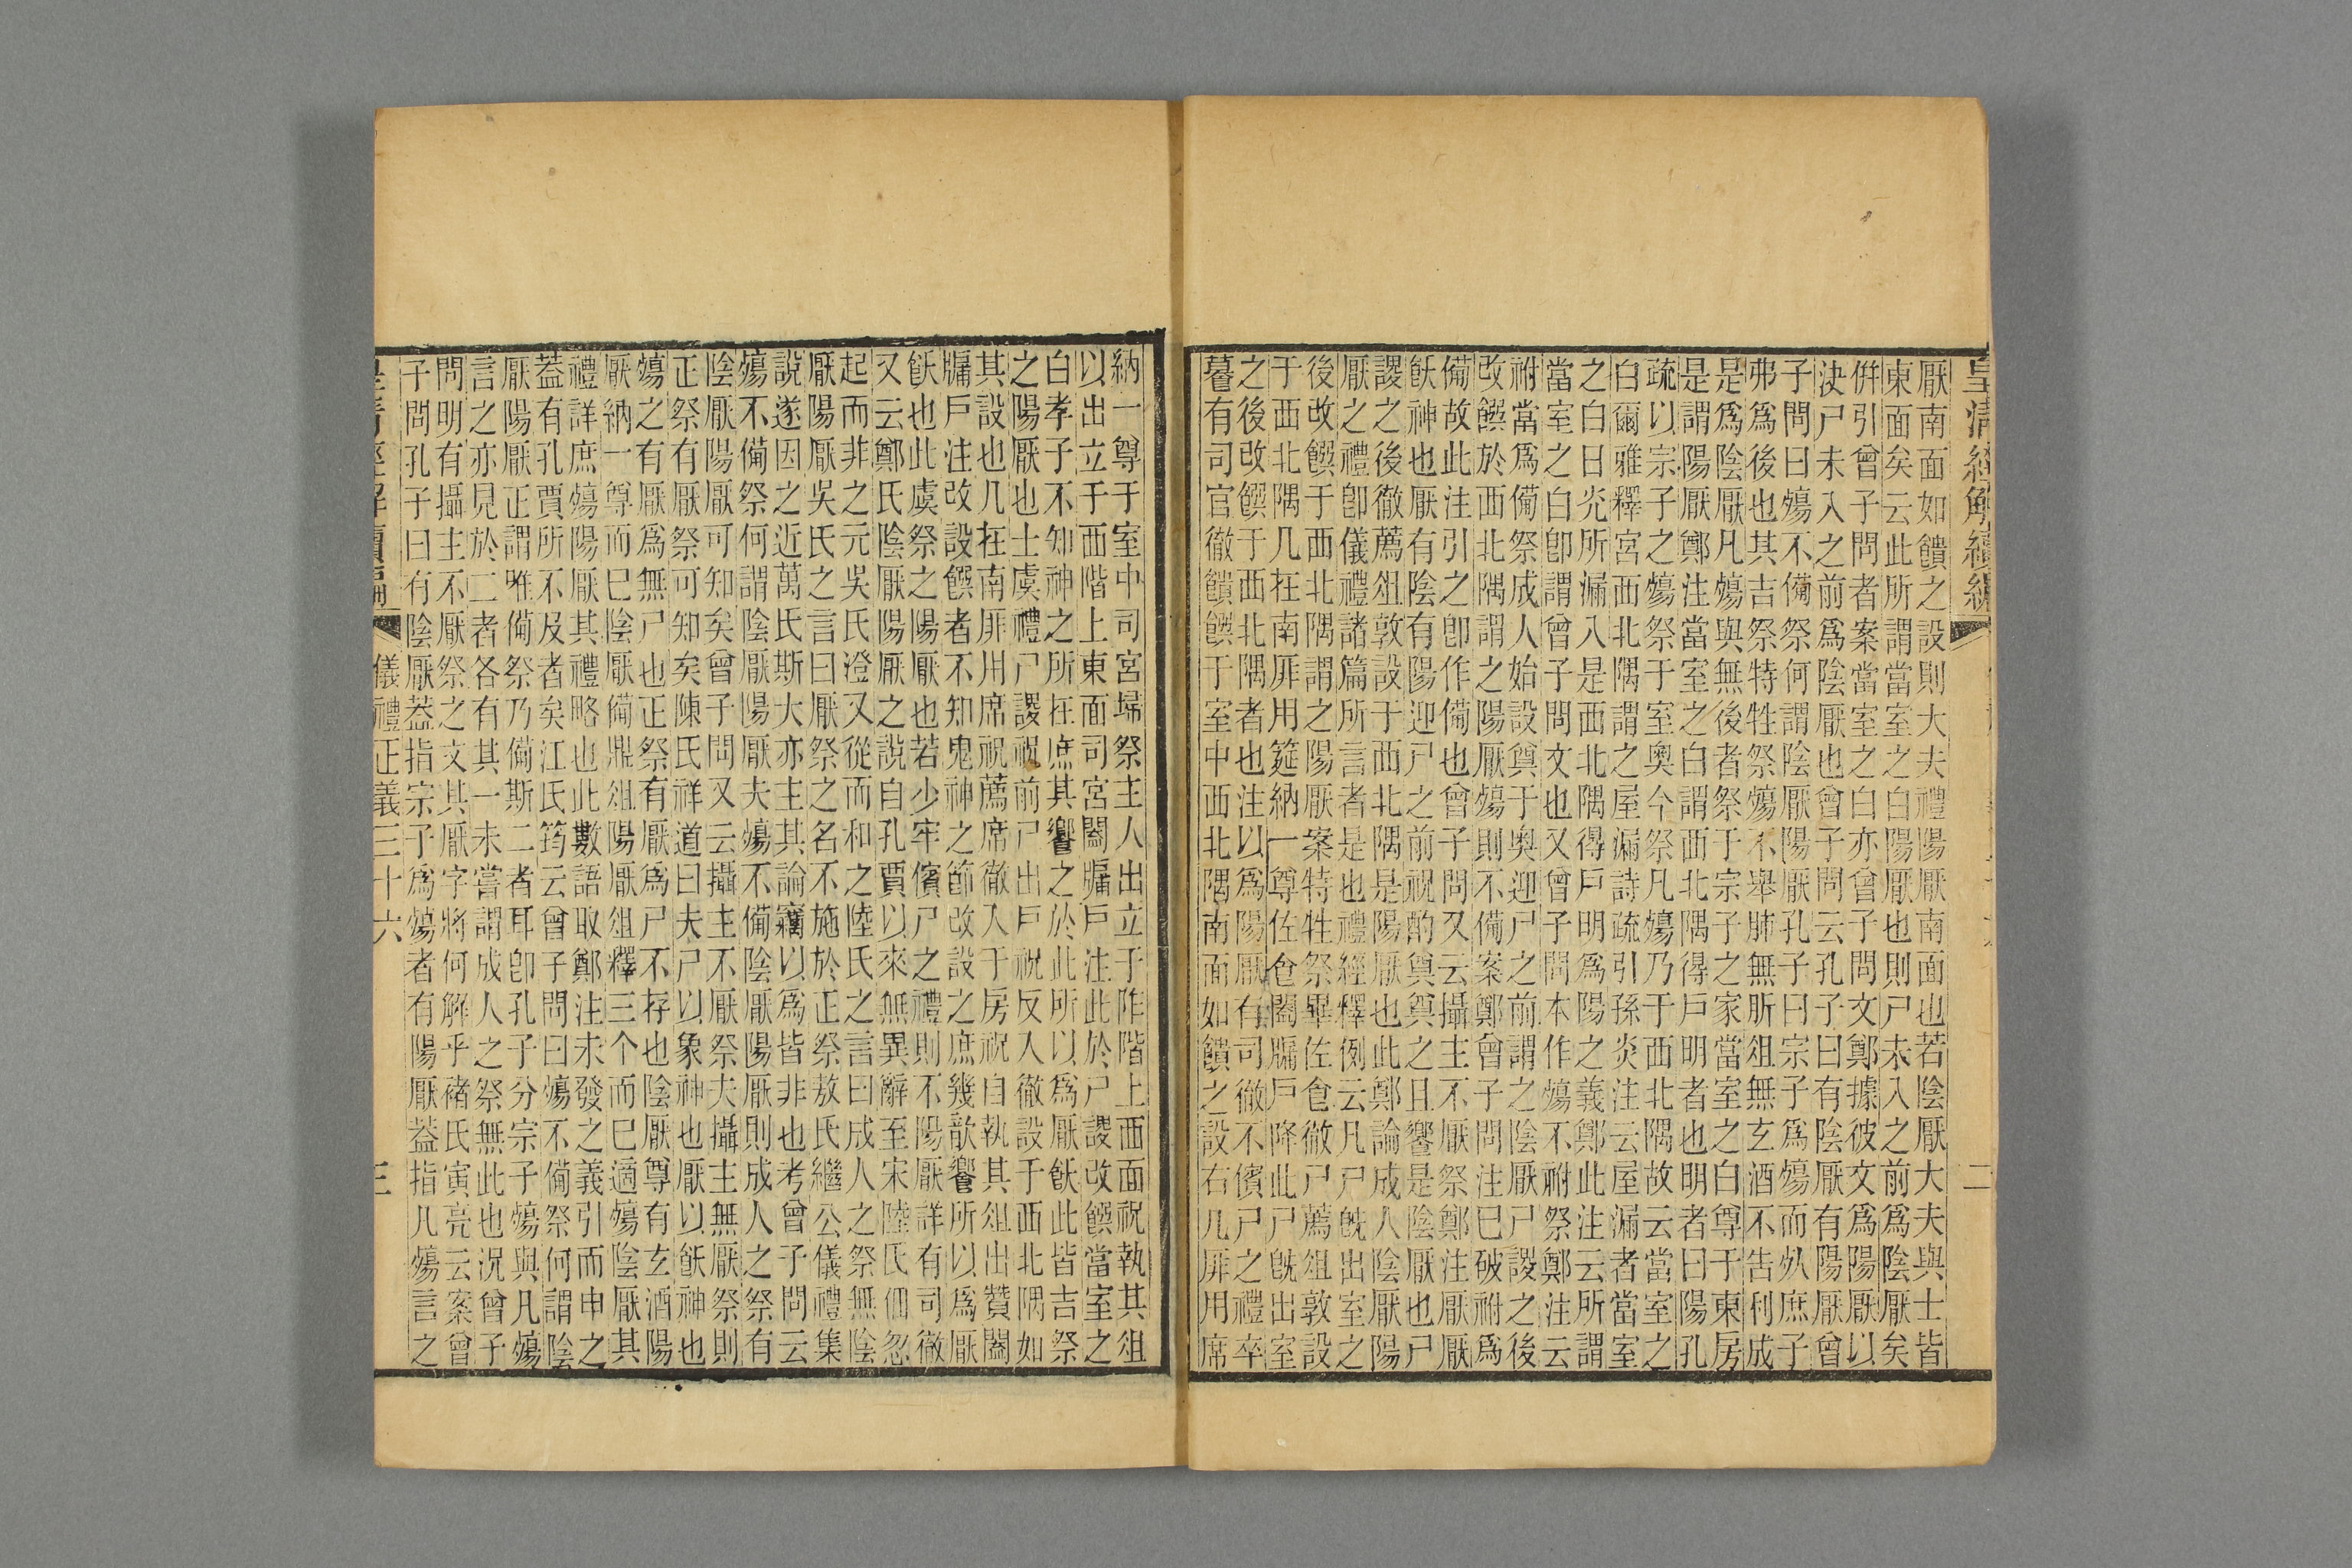 皇清經解續編
二
厭南面如饋之設則大夫禮陽厭南面也若陰厭大夫與士皆
東面矣云此所謂當室之白陽厭也則尸未入之前爲陰厭矣
併引曾子問者案當室之白亦曾子問文鄭據彼文爲陽厭以
決尸未入之前爲陰厭也曾子問云孔子曰有陰厭有陽厭曾
子問曰殤不備祭何謂陰厭陽厭孔子曰宗子爲殤而死庶子
弗爲後也其吉祭特牲祭殤不舉肺無肵俎無玄酒不告利成
是爲陰厭凡殤與無後者祭于宗子之家當室之白尊于東房
是謂陽厭鄭注當室之白謂西北隅得戶明者也明者曰陽孔
疏以宗子之殤祭于室奧今祭凡殤乃于西北隅故云當室之
白爾雅釋宮西北隅謂之屋漏詩疏引孫炎注云屋漏者當室
之白日光所漏入是西北隅得戶明爲陽之義鄭此注云所謂
當室之白卽謂曾子問文也又曾子問本作殤不祔祭鄭注云
祔當爲備祭成人始設奠于奧迎尸之前謂之陰厭尸謖之後
改饌於西北隅謂之陽厭殤則不備案鄭曾子問注已破祔爲
備故此注引之卽作備也曾子問又云攝主不厭祭鄭注厭厭
飫神也厭有陰有陽迎尸之前祝酌奠奠之且饗是陰厭也尸
謖之後徹薦俎敦設于西北隅是陽厭也此鄭論成人陰厭陽
厭之禮卽儀禮諸篇所言者是也禮經釋例云凡尸旣出室之
後改饌于西北隅謂之陽厭案特牲祭畢佐食徹尸薦俎敦設
于西北隅几在南厞用筵納一尊佐食闔牖戶降此尸旣出室
之後改饌于西北隅者也注以爲陽厭有司徹不儐尸之禮卒
暮有司官徹饋饌于室中西北隅南面如饋之設右几厞用席
納一尊于室中司宮埽祭主人出立于阼階上西面祝執其俎
以出立于西階上東面司宮闔牖戶注此於尸謖改饌當室之
白孝子不知神之所在庶其饗之於此所以爲厭飫此皆吉祭
之陽厭也士虞禮尸謖祝前尸出戶祝反入徹設于西北隅如
其設也几在南厞用席祝薦席徹入于房祝自執其俎出贊闔
牖戶注改設饌者不知鬼神之節改設之庶幾歆饗所以爲厭
飫也此虞祭之陽厭也若少牢儐尸之禮則不陽厭詳有司徹
又云鄭氏陰厭陽厭之說自孔賈以來無異辭至宋陸氏佃忽
起而非之元吳氏澄又從而和之陸氏之言曰成人之祭無陰
厭陽厭吳氏之言曰厭祭之名不施於正祭敖氏繼公儀禮集
說遂因之近萬氏斯大亦主其論竊以爲皆非也考曾子問云
殤不備祭何謂陰厭陽厭夫殤不備陰厭陽厭則成人之祭有
陰厭陽厭可知矣曾子問又云攝主不厭祭夫攝主無厭祭則
正祭有厭祭可知矣陳氏祥道曰夫尸以象神也厭以飫神也
殤之有厭爲無尸也正祭有厭爲尸不存也陰厭尊有玄酒陽
厭納一尊而已陰厭備鼎俎陽厭俎釋三个而已適殤陰厭其
禮詳庶殤陽厭其禮略也此數語取鄭注未發之義引而申之
葢有孔賈所不及者矣江氏筠云曾子問曰殤不備祭何謂陰
厭陽厭正謂唯備祭乃備斯二者耳卽孔子分宗子殤與凡殤
言之亦見於二者各有其一未嘗謂成人之祭無此也況曾子
問明有攝主不厭祭之文其厭字將何解乎褚氏寅亮云案曾
子問孔子曰有陰厭葢指宗子爲殤者有陽厭葢指凡殤言之
皇清經解續編
儀禮正義三十六
三